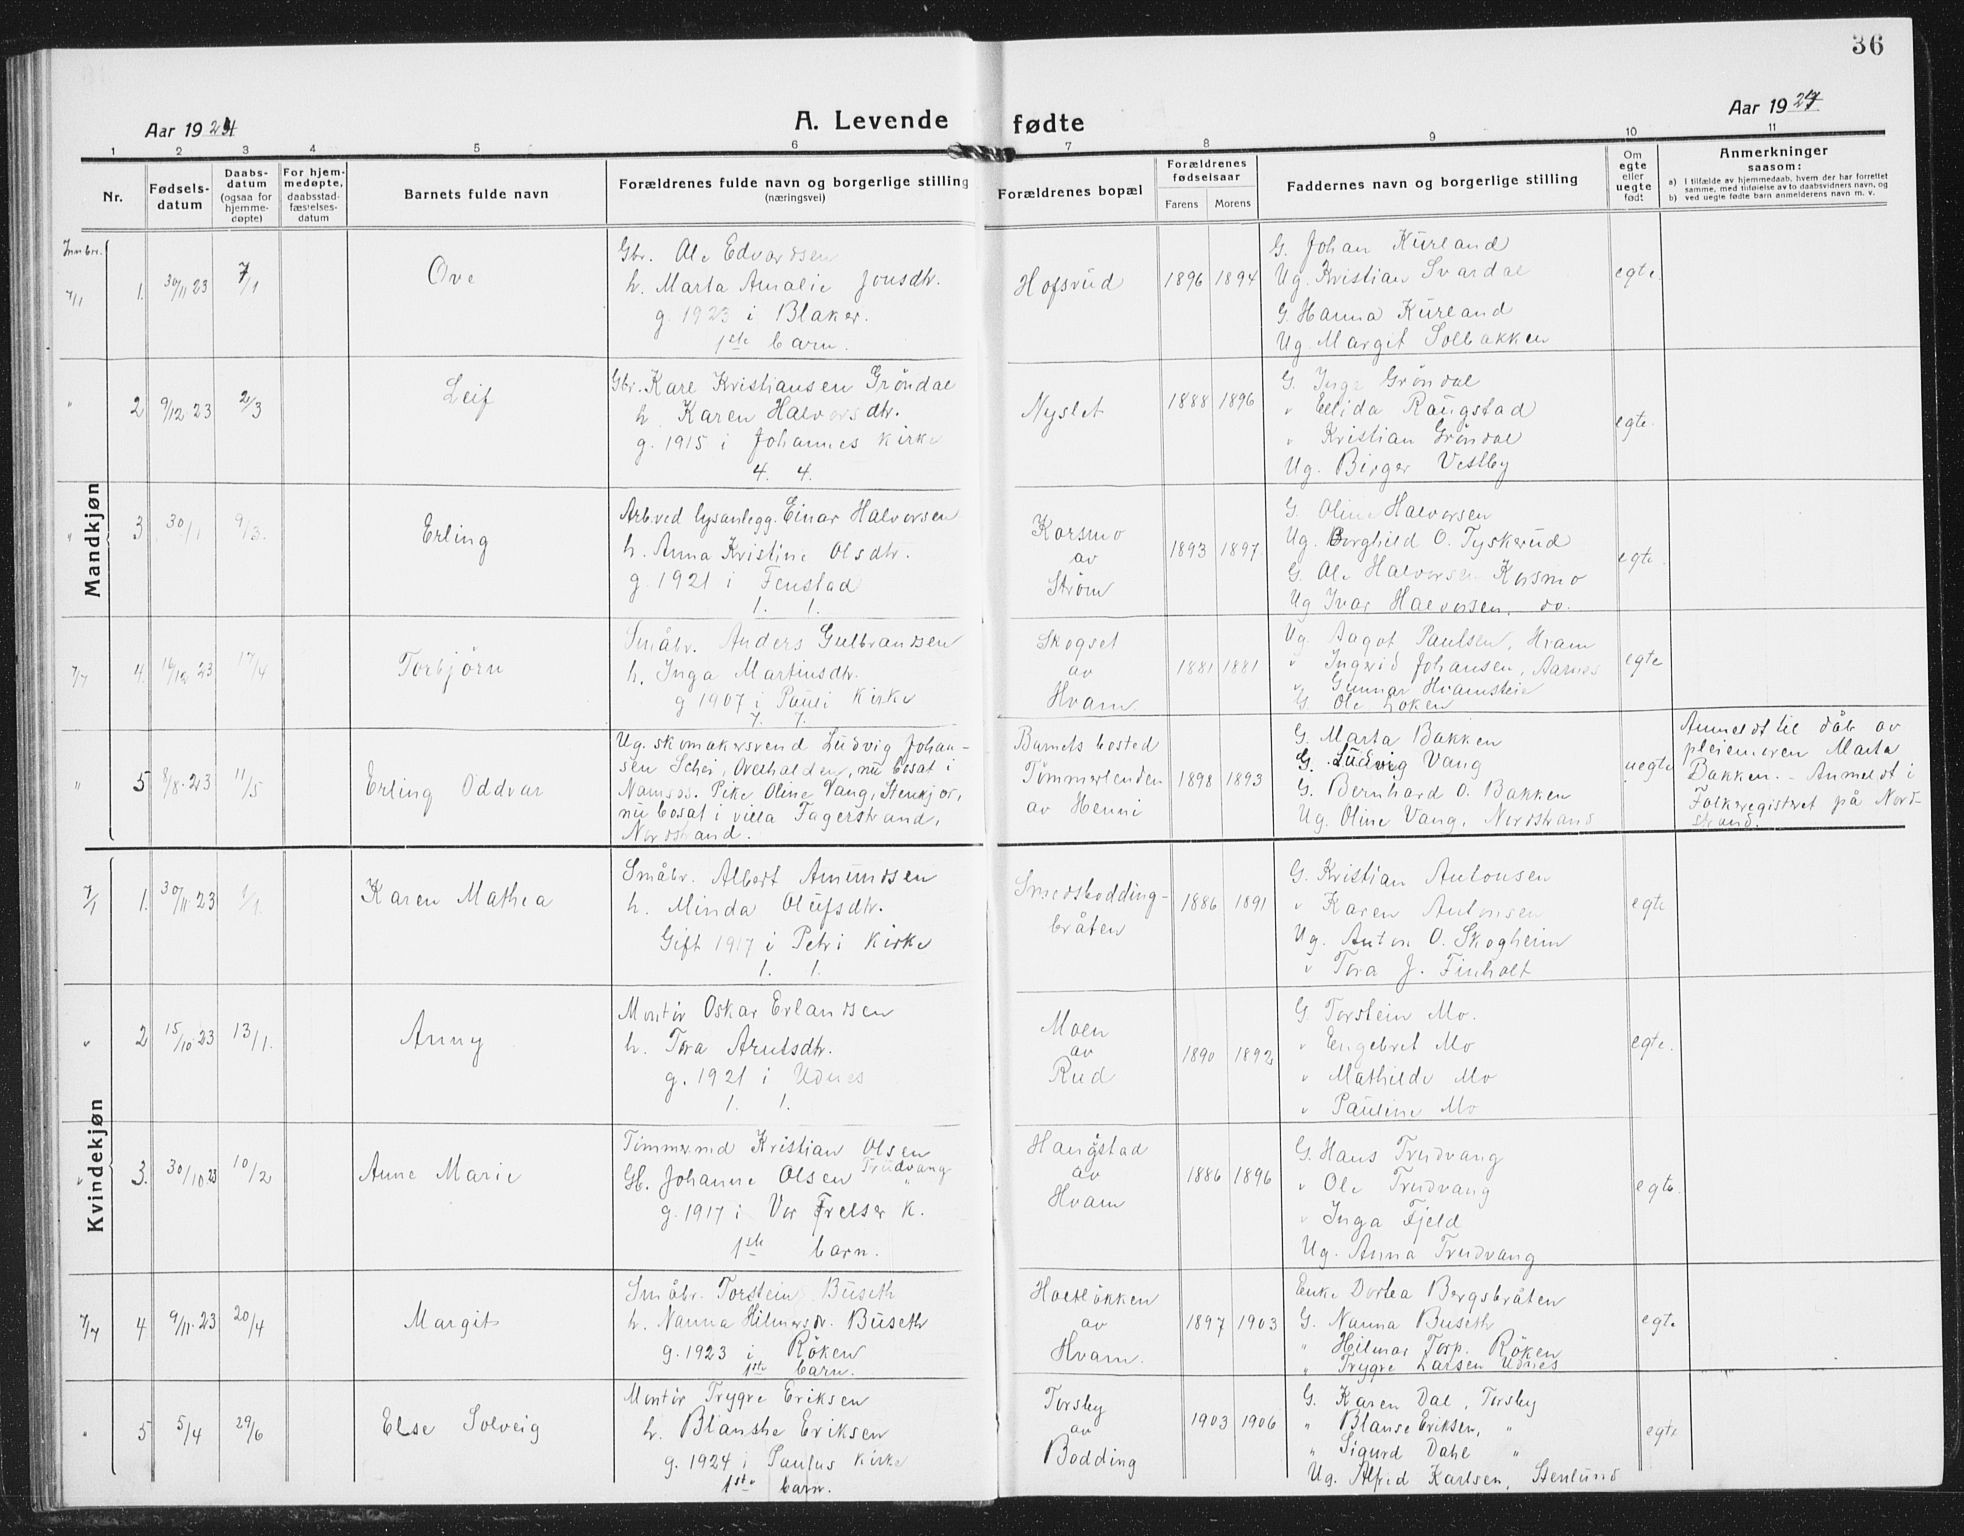 36
Aar 1924
A. Levende fødte
Aar 1924
1 2 3 4 5 6 7 8 9 10 11
Nr.
Fødsels-
datum
Daabs-
datum
(ogsaa for
hjemme-
døpte)
For hjem-
medøpte,
daabsstad-
fæstelses-
datum
Barnets fulde navn
Forældrenes fulde navn og borgerlige stilling
(næringsvei)
Forældrenes bopæl
Forældrenes
fødselsaar
Farens Morens
Faddernes navn og borgerlige stilling
Om
egte
eller
uegte
født
Anmerkninger
saasom:
a) I tilfælde av hjemmedaab, hvem der har forrettet
samme, med tilføielse av to daabsvidners navn, og
b) ved uegte fødte barn anmelderens navn m. v.
Mandkjøn
Innbr.
7/1 1. 30/11 23 7/1
Ove
Gbr. Ole Edvardsen
h. Marta Amalie Jonsdtr.
g. 1923 i Blaker.
1ste barn.
Hofsrud
1896 1894
G. Johan Kurland
Ug. Kristian Svardal
G. Hanna Kurland
Ug. Margit Solbakken
egte
" 2 9/12 23 2/3
Leif
Gbr. Kare Kristiansen Grøndal
h. Karen Halvorsdtr.
g. 1915 i Johannes Kirke
4. 4.
Nyslet
1888 1896
G. Inga Grøndal
" Elida Raugstad
" Kristian Grøndal
Ug. Birger Vestby
egte.
" 3 30/1 9/3.
Erling
Arb. ved lysanlegg. Einar Halvorsen
h. Anna Kristine Olsdtr.
g. 1921 i Fenstad
1. 1.
Korsmo
av
Strøm
1893 1897
G. Oline Halvorsen
Ug. Borghild O. Tyskerud
G. Ole Halvorsen Korsmo
Ug Ivar Halvorsen, do.
egte.
7/7 4. 16/12 23 17/4
Torbjørn
Småbr. Anders Gulbrandsen
h. Inga Martinsdtr.
g 1907 i Pauli Kirke
7. 7.
Skogset
av
Hvam.
1881 1881
Ug. Aagot Paulsen, Hvam
" Ingrid Johansen, Aarnes
" Gunnar Hvamstein
G. Ole Løken
egte
" 5 8/8. 23 11/5
Erling Oddvar
Ug. skomakersvend Ludvig Johan-
sen Schei, Overhalden, nu bosat i
Namsos. Pike Oline Vang, Stenkjer,
nu bosat i villa Fagerstrand,
Nordstrand.
Barnets bosted
Tømmerlenden
av Henni
1898 1893
G. Marta Bakken
G. Ludvig Vang
G. Bernhard O. Bakken
Ug. Oline Vang, Nordstrand
uegte
Anmeldt til dåb av
pleiemoren Marta
Bakken. - Anmeldt i
Folkeregisteret på Nord-
strand.
Kvindekjøn
7/1 1. 30/11 23 1/1.
Karen Mathea
Småbr. Albert Amundsen
h. Minda Olufsdtr.
Gift 1917 i Petri Kirke
1. 1.
Smedsbodding-
bråten
1886 1891
G. Kristian Antonsen
" Karen Antonsen
Ug. Anton O. Skogheim
" Tora J. Finholt
egte
" 2 15/10 23 13/1.
Anny
Montør Oskar Erlandsen
h. Tora Arntsdtr.
g. 1921 i Udnes
1. 1.
Moen
av
Rud
1890 1892
G. Torstein Mo.
" Engebret Mo
" Mathilde Mo
" Pauline Mo
egte.
" 3. 30/10 23 10/2
Anne Marie
Tømmermd Kristian Olsen
Trudvang
Gb. Johanne Olsen "
g. 1917 i Vor Frelser K.
1ste barn.
Haugstad
av
Hvam
1886 1896
G. Hans Trudvang
" Ole Trudvang
" Inga Fjeld
Ug. Anna Trudvang
egte.
7/7 4 9/11. 23 20/4
Margit
Småbr. Torstein Buseth
h. Nanna Hilmarsdr. Buseth
g. 1923 i Røken
1ste barn.
Holtløkken
av
Hvam.
1897 1903
Enke Dortea Bergsbråten
G. Nanna Buseth
" Hilmar Torp. Røken
" Trygve Larsen Udnes
egte
" 5 5/4 29/6
Else Solveig
Montør Trygve Eriksen
h. Blanshe Eriksen
g. 1924 i Paulus Kirke
1ste barn.
Torsby
av
Bodding
1903 1906
G. Karen Dal, Torsby
" Blanse Eriksen, "
" Sigurd Dahl "
Ug. Alfred Karlsen, Stenlund
egte